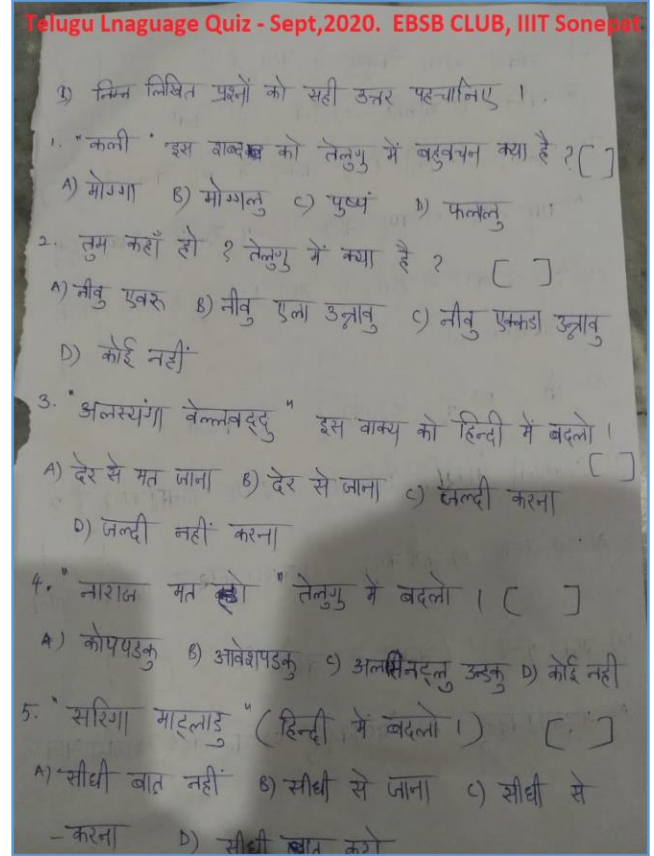 Telugu Lnaguage Quiz - Sept,2020. EBSB CLUB, IIIT Sonepat
1) निम्न लिखित प्रश्नों को सही उत्तर पहचानिए ।.
1. "कली" इस शब्द को तेलुगु में बहुवचन क्या है ? [ ]
A) मोग्गा B) मोग्गलु C) पुष्पं D) फलालु
2. तुम कहाँ हो ? तेलुगु में क्या है ? [ ]
A) नीवु एवरू B) नीवु एला उन्नावु C) नीवु एक्कडा उन्नावु
D) कोई नहीं
3. "अलस्यंगा वेल्लवद्दु" इस वाक्य को हिन्दी में बदलो !
[ ]
A) देर से मत जाना B) देर से जाना C) जल्दी करना
D) जल्दी नहीं करना
4. "नाराज मत हो" तेलुगु में बदलो । ( ]
A) कोपपडकु B) आवेशपडकु C) उन्डकु D) कोई नही
5. "सरिगा माट्लाडु" (हिन्दी में बदलो ।) [ ]
A) सीधी बात नहीं B) सीधी से जाना C) सीधी से
- करना D) सीधी बात करो